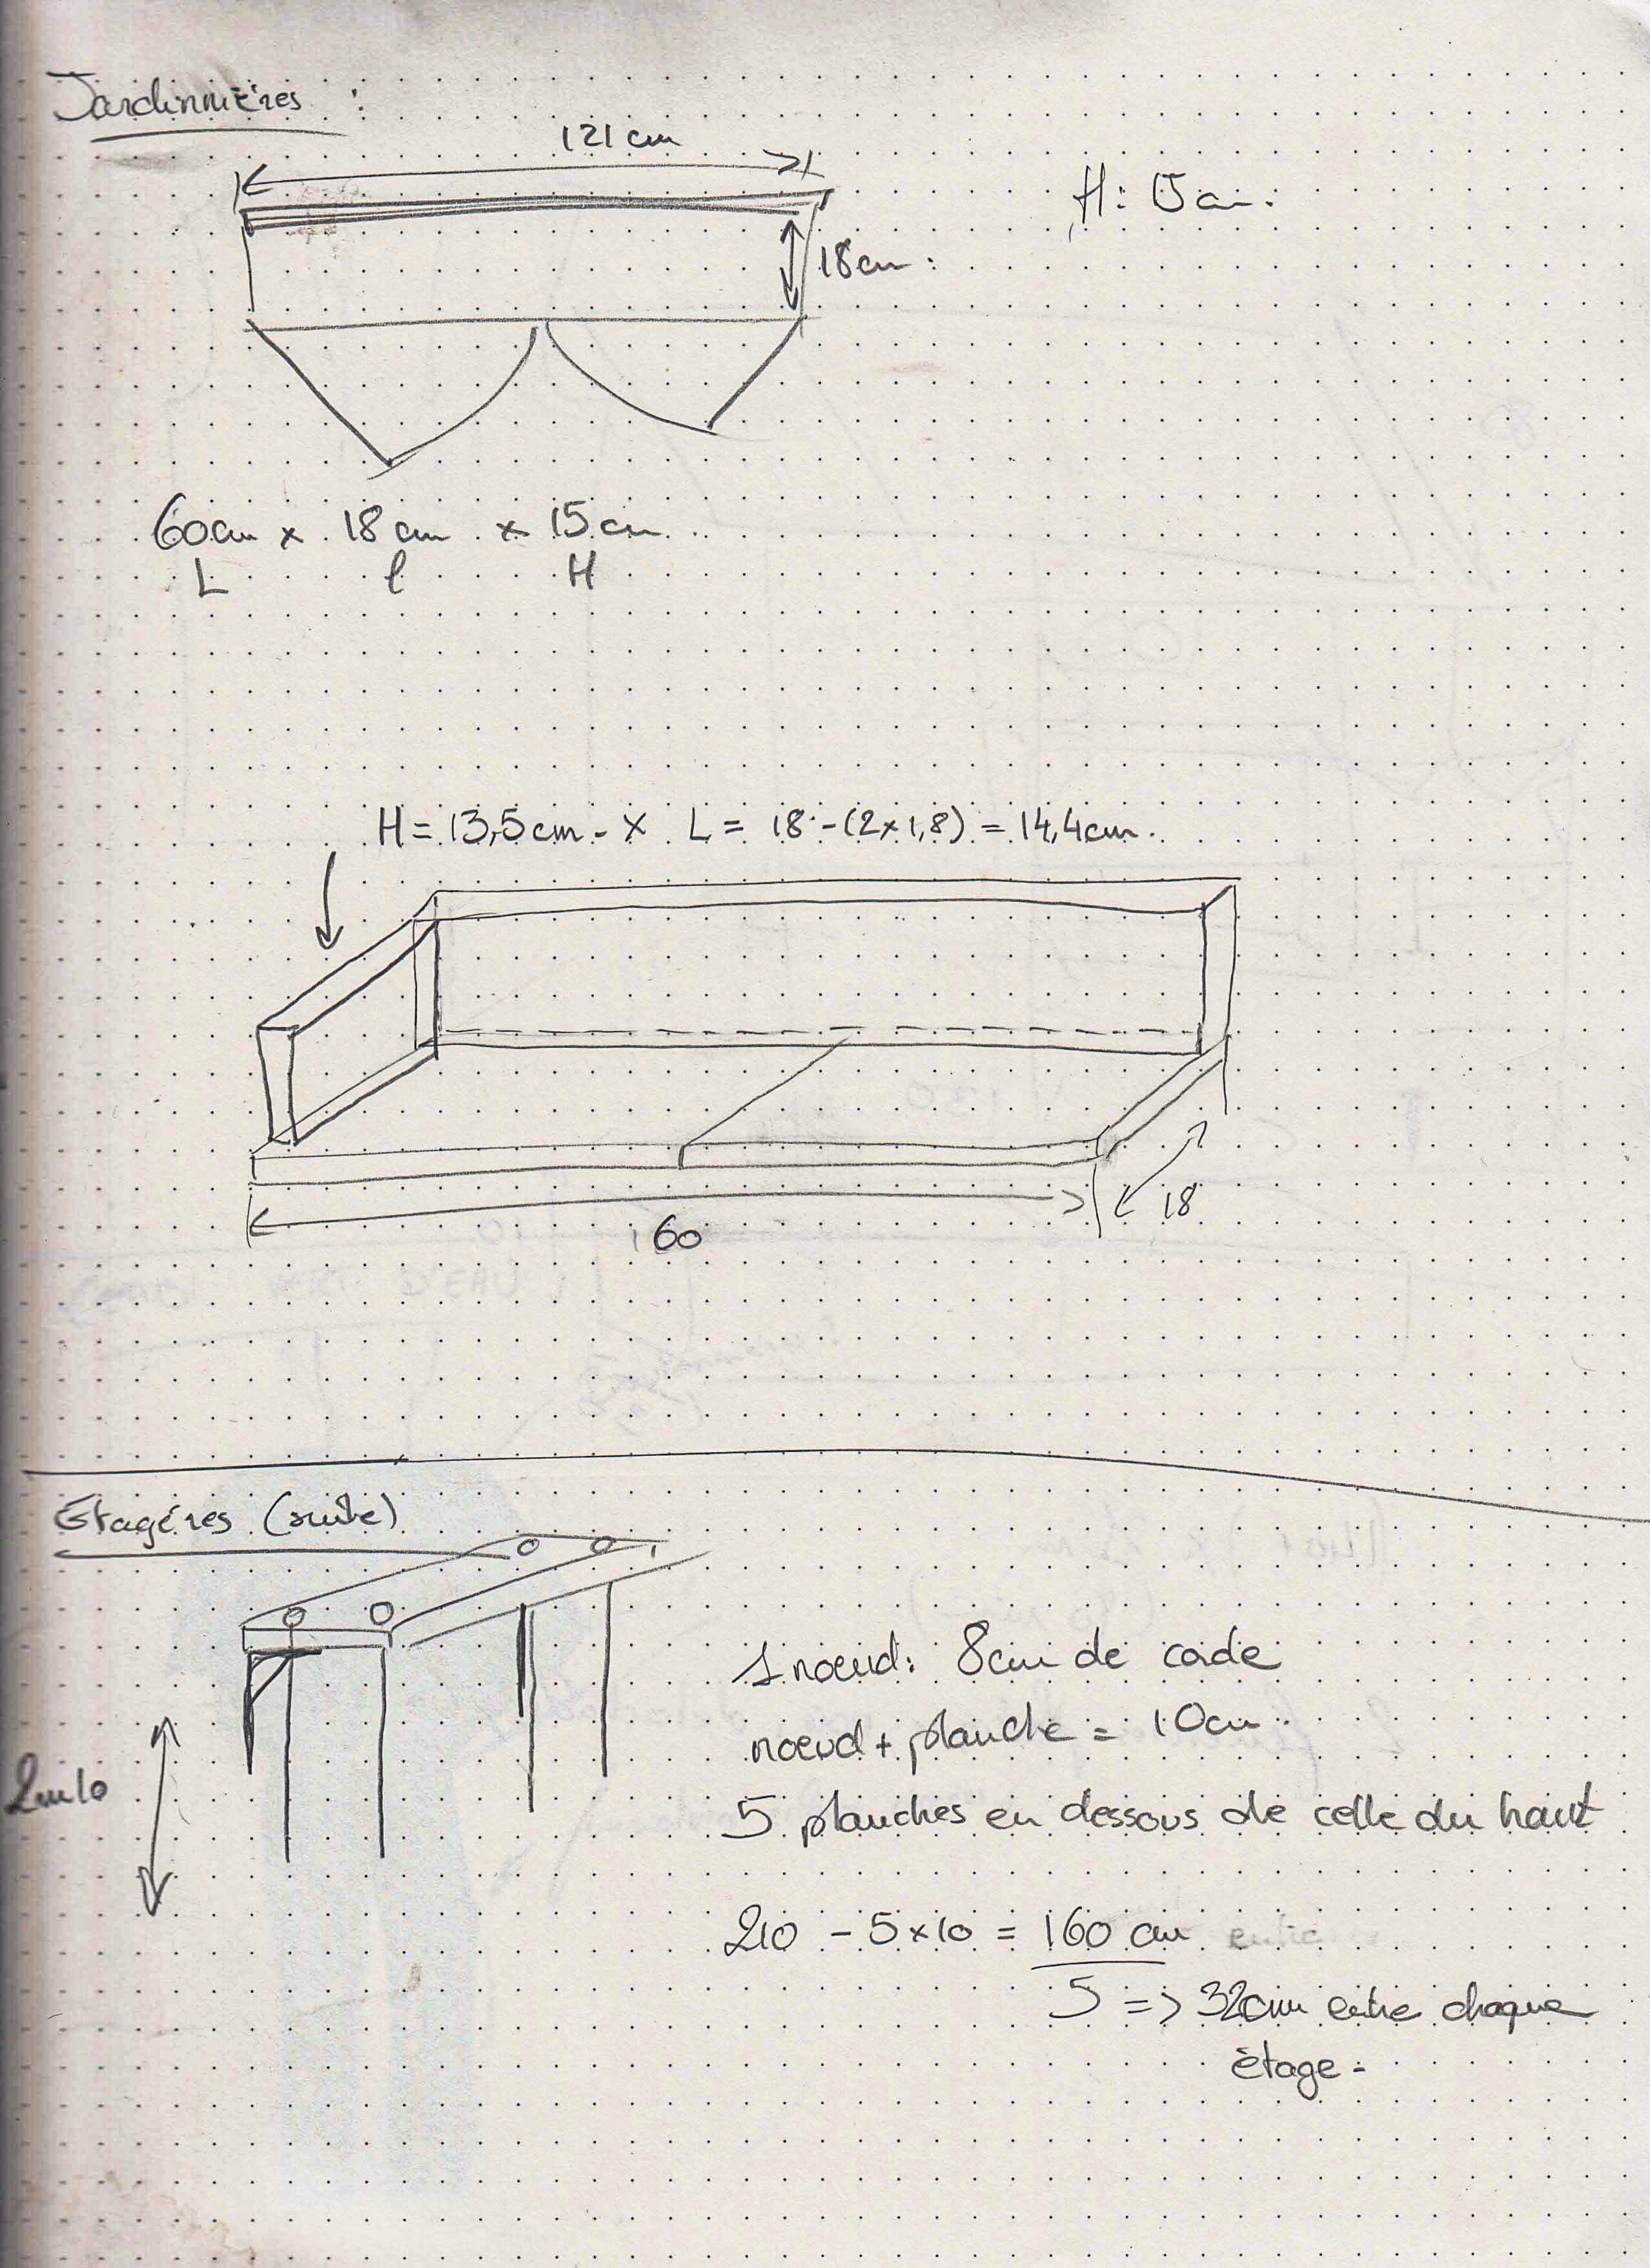 Jardinnières :
121 cm
H: 15 cm.
18cm.
60cm x 18 cm x 15 cm
L l H
H = 13,5cm - x L = 18 - (2x1,8) = 14,4cm.
60
18
Etagères (suite)
1 noeud: 8cm de corde
noeud + planche = 10cm.
2m10
5 planches en dessous de celle du haut
210 - 5x10 = 160 cm entre
5 => 32cm entre chaque
étage.